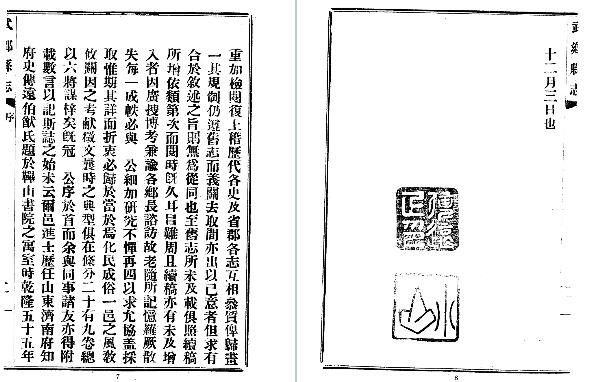 重加檢閱復上稽歷代各史及省郡各志互相叅質俾歸畫
一其規制仍遵舊志而義關去取間亦出以己意者但求有
合於敘述之旨則無為從同也至舊志所未及載俱照續稿
所增依類第次而閱時旣久耳目難周且續稿亦有未及增
入者因廣搜博考兼諭各鄉長諮訪故老隨所記憶羅厥散
失每一成帙必與 公細加研究不憚再四以求允協蓋採
取惟期其詳而折衷必歸於當於焉化民成俗一邑之風敎
攸關因之考獻徵文展時之典型俱在條分二十有九卷總
以六將謀梓矣旣冠 公序於首而余與同事諸友亦得附
載數言以記斯誌之始末云爾邑進士歷任山東濟南府知
府史傳遠伯猷氏題於鞞山書院之寓室時乾隆五十五年
武鄉縣志 序
7
武鄉縣志
十二月三日也
8